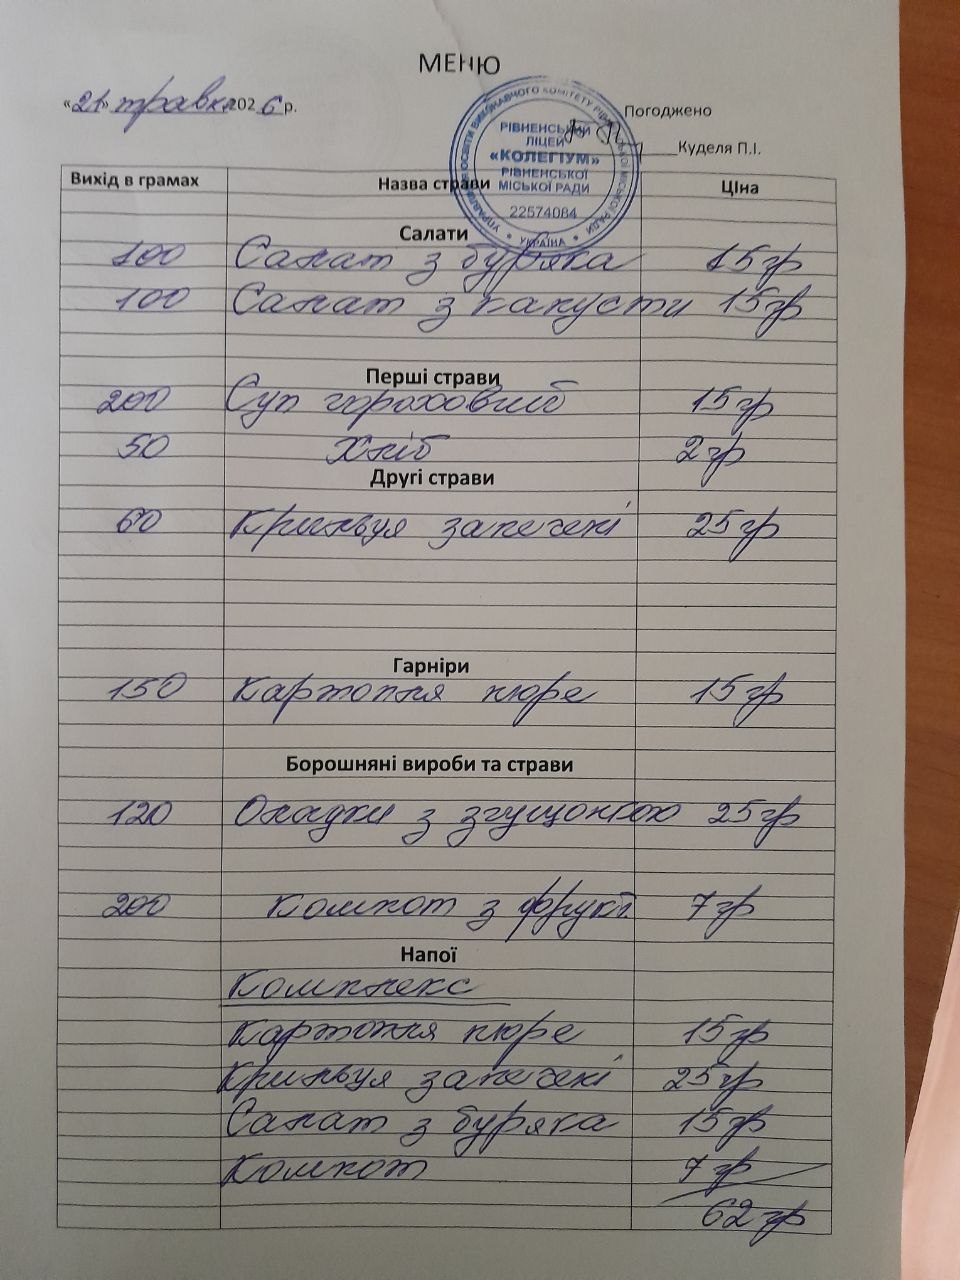 МЕНЮ
«21» травня 2026 р.
Погоджено
Куделя П.І.
УПРАВЛІННЯ ОСВІТИ ВИКОНАВЧОГО КОМІТЕТУ РІВНЕНСЬКОЇ МІСЬКОЇ РАДИ
РІВНЕНСЬКИЙ
ЛІЦЕЙ
«КОЛЕГІУМ»
РІВНЕНСЬКОЇ
МІСЬКОЇ РАДИ
22574084
* УКРАЇНА *
Вихід в грамах Назва страви Ціна
Салати
100 Салат з буряка 15 гр
100 Салат з капусти 15 гр
Перші страви
200 Суп гороховий 15 гр
50 Хліб 2 гр
Другі страви
60 Крильця запечені 25 гр
Гарніри
150 Картопля пюре 15 гр
Борошняні вироби та страви
120 Оладки з згущонкою 25 гр
200 Компот з фрукт. 7 гр
Напої
Комплекс
Картопля пюре 15 гр
Крильця запечені 25 гр
Салат з буряка 15 гр
Компот 7 гр
62 гр